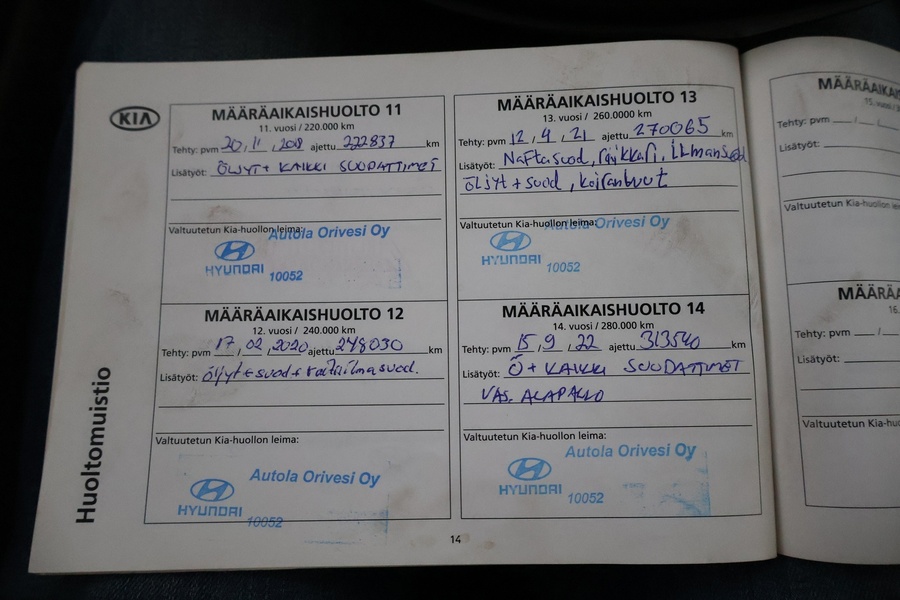 KIA
MÄÄRÄAIKAISHUOLTO 11
11. vuosi / 220.000 km
Tehty: pvm 20, 11, 2018 ajettu 222837 km
Lisätyöt: ÖLJYT + KAIKKI SUODATTIMET
Valtuutetun Kia-huollon leima:
Autola Orivesi Oy
HYUNDAI 10052
MÄÄRÄAIKAISHUOLTO 12
12. vuosi / 240.000 km
Tehty: pvm 17, 02, 2020 ajettu 248030 km
Lisätyöt: öljyt + suod + raitisilmasuod.
Valtuutetun Kia-huollon leima:
Autola Orivesi Oy
HYUNDAI 10052
MÄÄRÄAIKAISHUOLTO 13
13. vuosi / 260.0000 km
Tehty: pvm 12, 9, 21 ajettu 270065 km
Lisätyöt: Naftasuod, räykkäri, ilmansuod
öljyt + suod, koiranluut
Valtuutetun Kia-huollon leima:
Autola Orivesi Oy
HYUNDAI 10052
MÄÄRÄAIKAISHUOLTO 14
14. vuosi / 280.000 km
Tehty: pvm 15, 9, 22 ajettu 313540 km
Lisätyöt: Ö + KAIKKI SUODATTIMET
VAS. ALAPALLO
Valtuutetun Kia-huollon leima:
Autola Orivesi Oy
HYUNDAI 10052
Huoltomuistio
14
Tehty: pvm
Lisätyöt:
Valtuutetun Kia-huollon
Tehty: pvm
Lisätyöt:
Valtuutetun